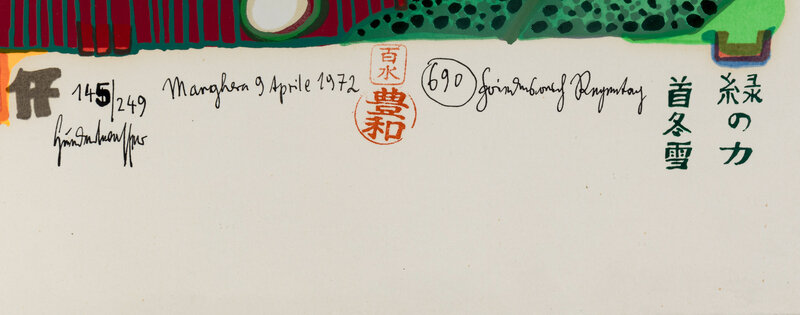 145/249 Marghera 9 Aprile 1972
Hundertwasser
百水
豊和
690 Friedensreich Regentag
緑の力
首冬雪